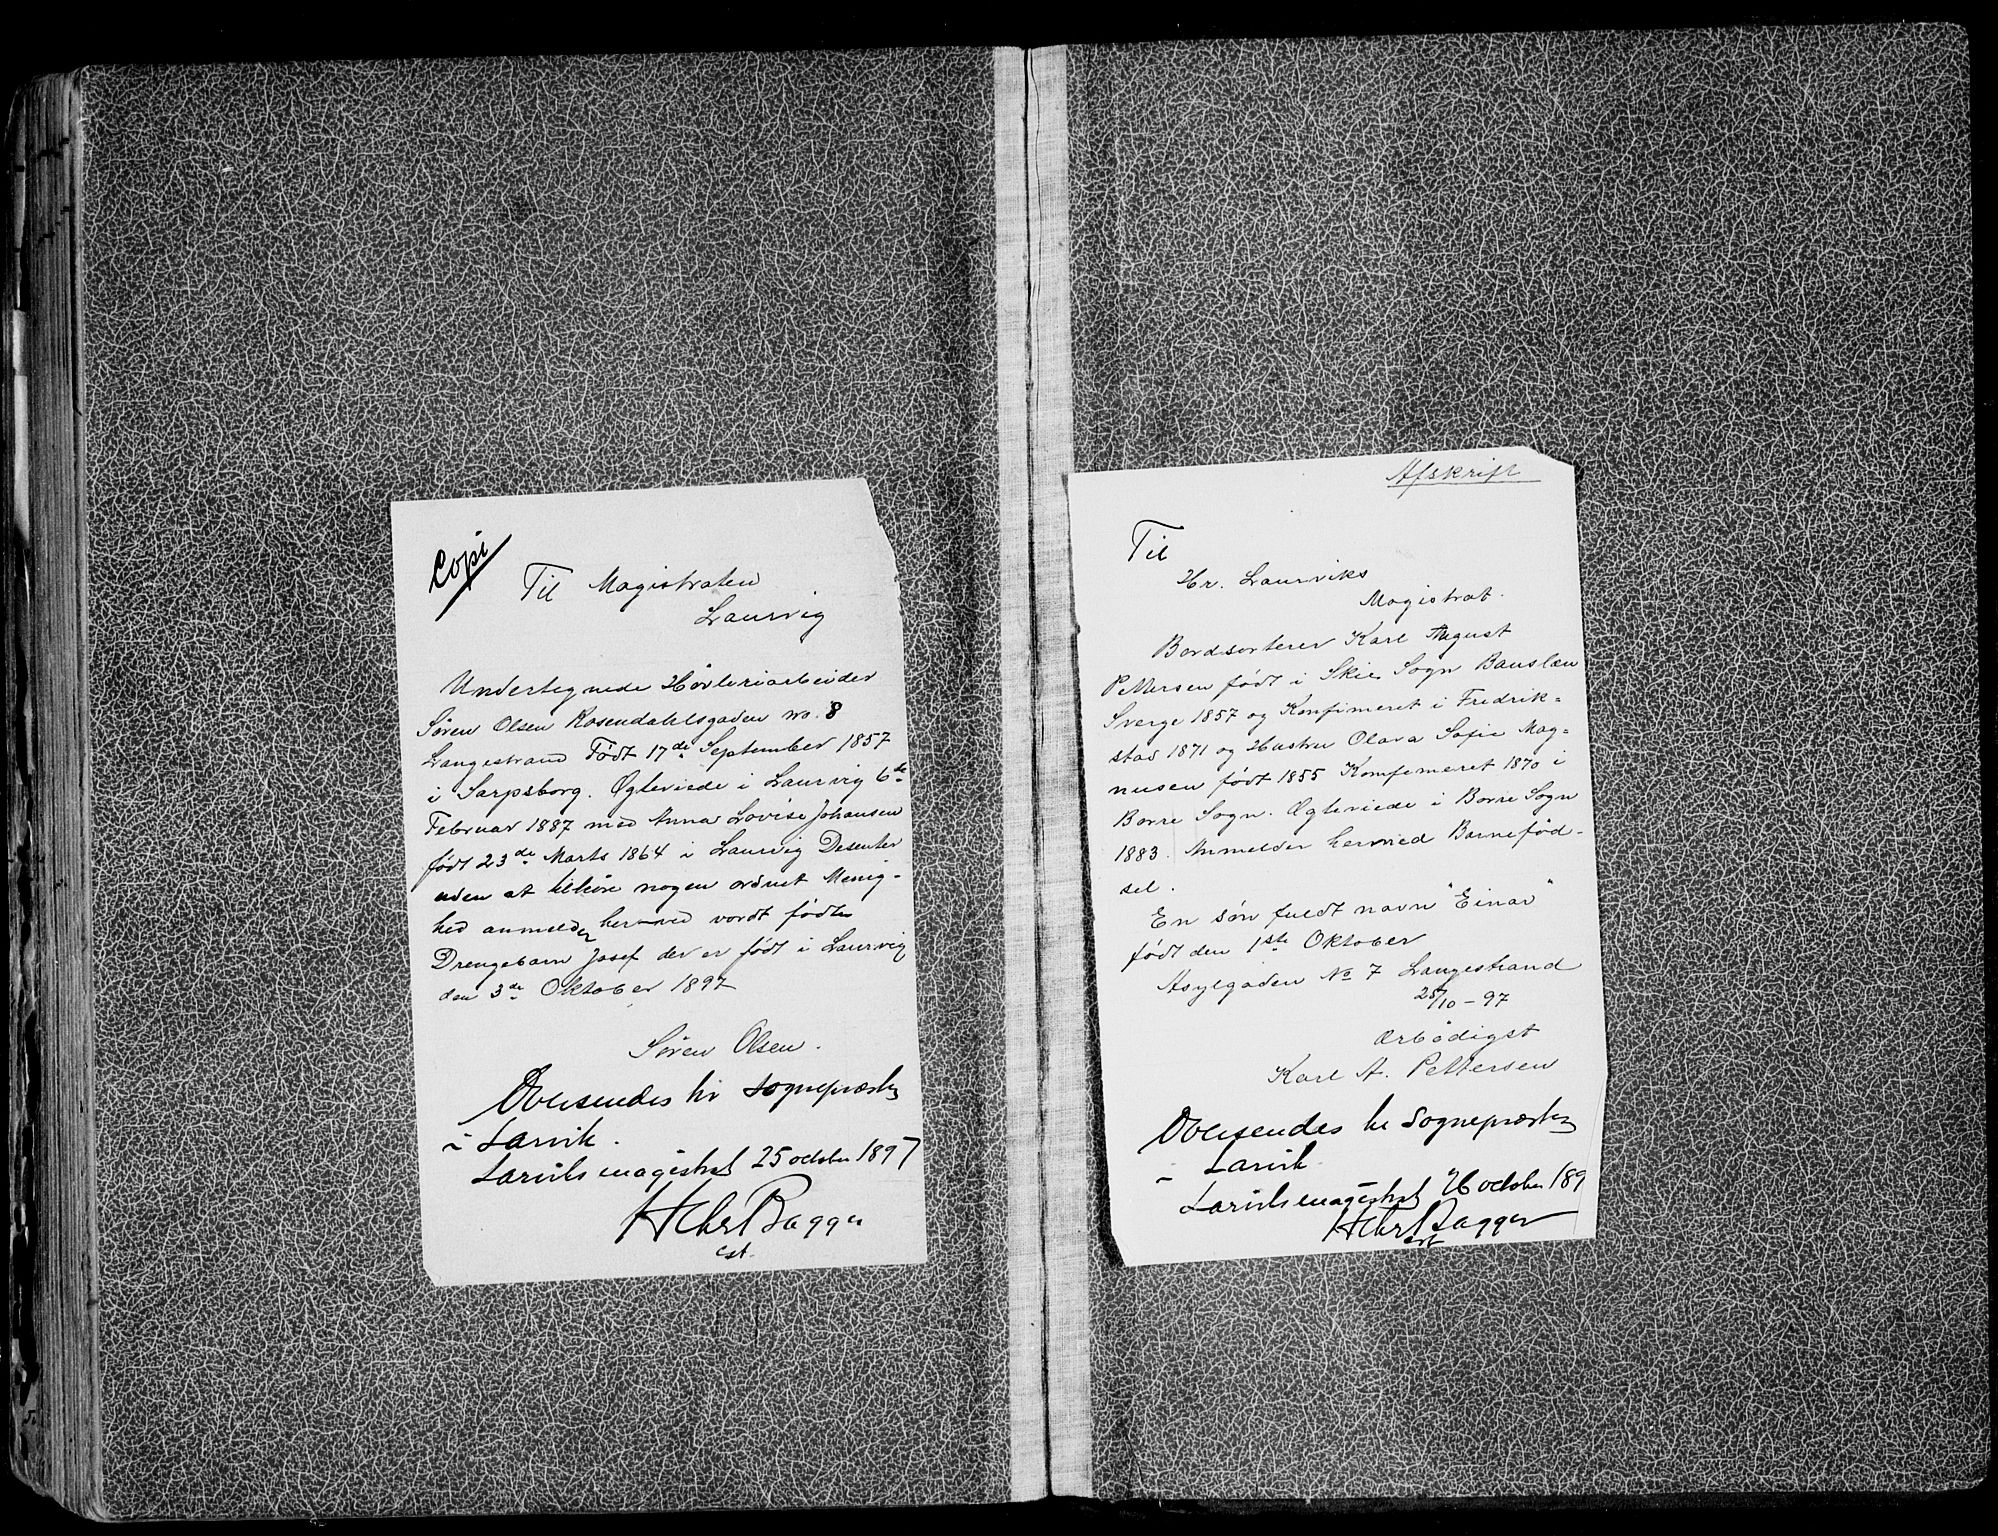 Copi
Til Magistraten
Laurvig
Undertegnede Høvleriarbeider
Søren Olsen Rosendahlsgaden no. 8
Langestrand Født 17de September 1857
i Sarpsborg. Ægteviede i Laurvig 6te
Februar 1887 med Anna Lovise Johansen
født 23de Marts 1864 i Laurvig Desenter
uden at tilhøre nogen ordnet Menig-
hed anmelder herved vordt fødte
Drengebarn Josef der er født i Laurvig
den 3de Oktober 1897
Søren Olsen.
Oversendes hr sognepræsten
i Larvik.
Larviks magistrat 25 october 1897
Bagger
cst.
Afskrift
Til
Hr. Laurviks
Magistrat.
Bordsorterer Karl August
Pettersen født i Skie Sogn
Sverge 1857 og Konfimeret i Fredrik-
stad 1871 og Hustru Olava Sofie Mag-
nusen født 1855 Komfimeret 1870 i
Borre Sogn. Ægteviede i Borre Sogn
1883. Anmelder hermed Barnefød-
sel.
En søn fuldt navn "Einar"
født den 1ste Oktober
Asylgaden No 7 Langestrand
25/10 - 97
Ærbødigst
Karl A. Pettersen
Oversendes hr Sognepræsten
i Larvik
Larviks magistrat 26 october 189
Bagger
cst